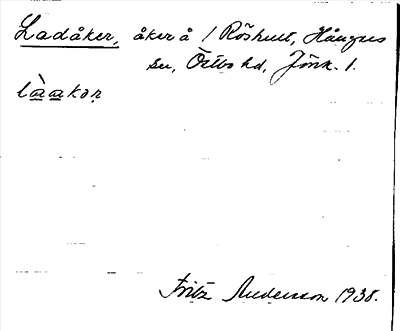 Ladåker, åker å / Röshult, Hångers
sn, Östbo hd, Jönk. l.
làakor
Fritz Andersson 1938.